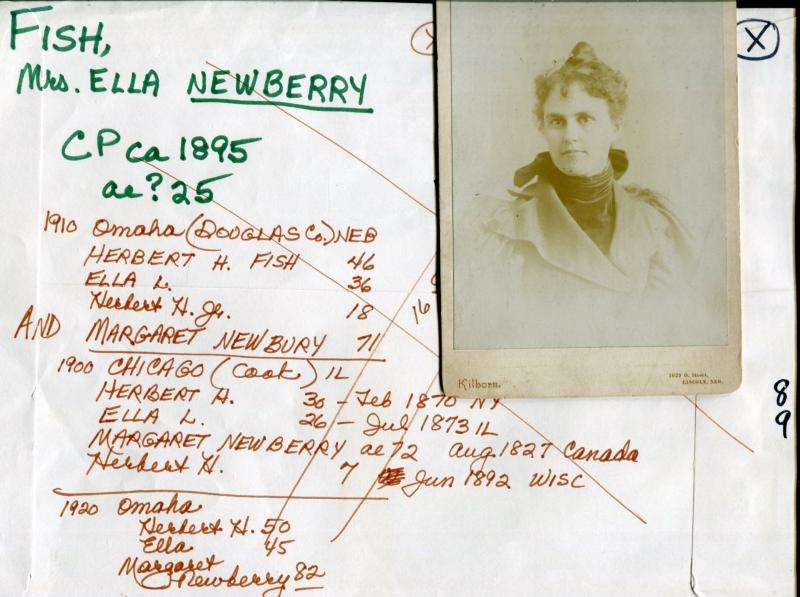 FISH,
Mrs. ELLA NEWBERRY
CP ca 1895
ae? 25
X
1910 Omaha (DOUGLAS Co.) NEB
HERBERT H. FISH 46
ELLA L. 36
Herbert H. Jr. 18 16
AND MARGARET NEWBURY 71
1900 CHICAGO (Cook) IL
HERBERT H. 30 - Feb 1870 NY
ELLA L. 26 - Jul 1873 IL
MARGARET NEWBERRY ae 72 Aug 1827 Canada
Herbert H. 7 Jun 1892 WISC
1920 Omaha
Herbert H. 50
Ella 45
Margaret
Newberry 82
Kilborn.
1029 O. Street,
LINCOLN, NEB.
8
9